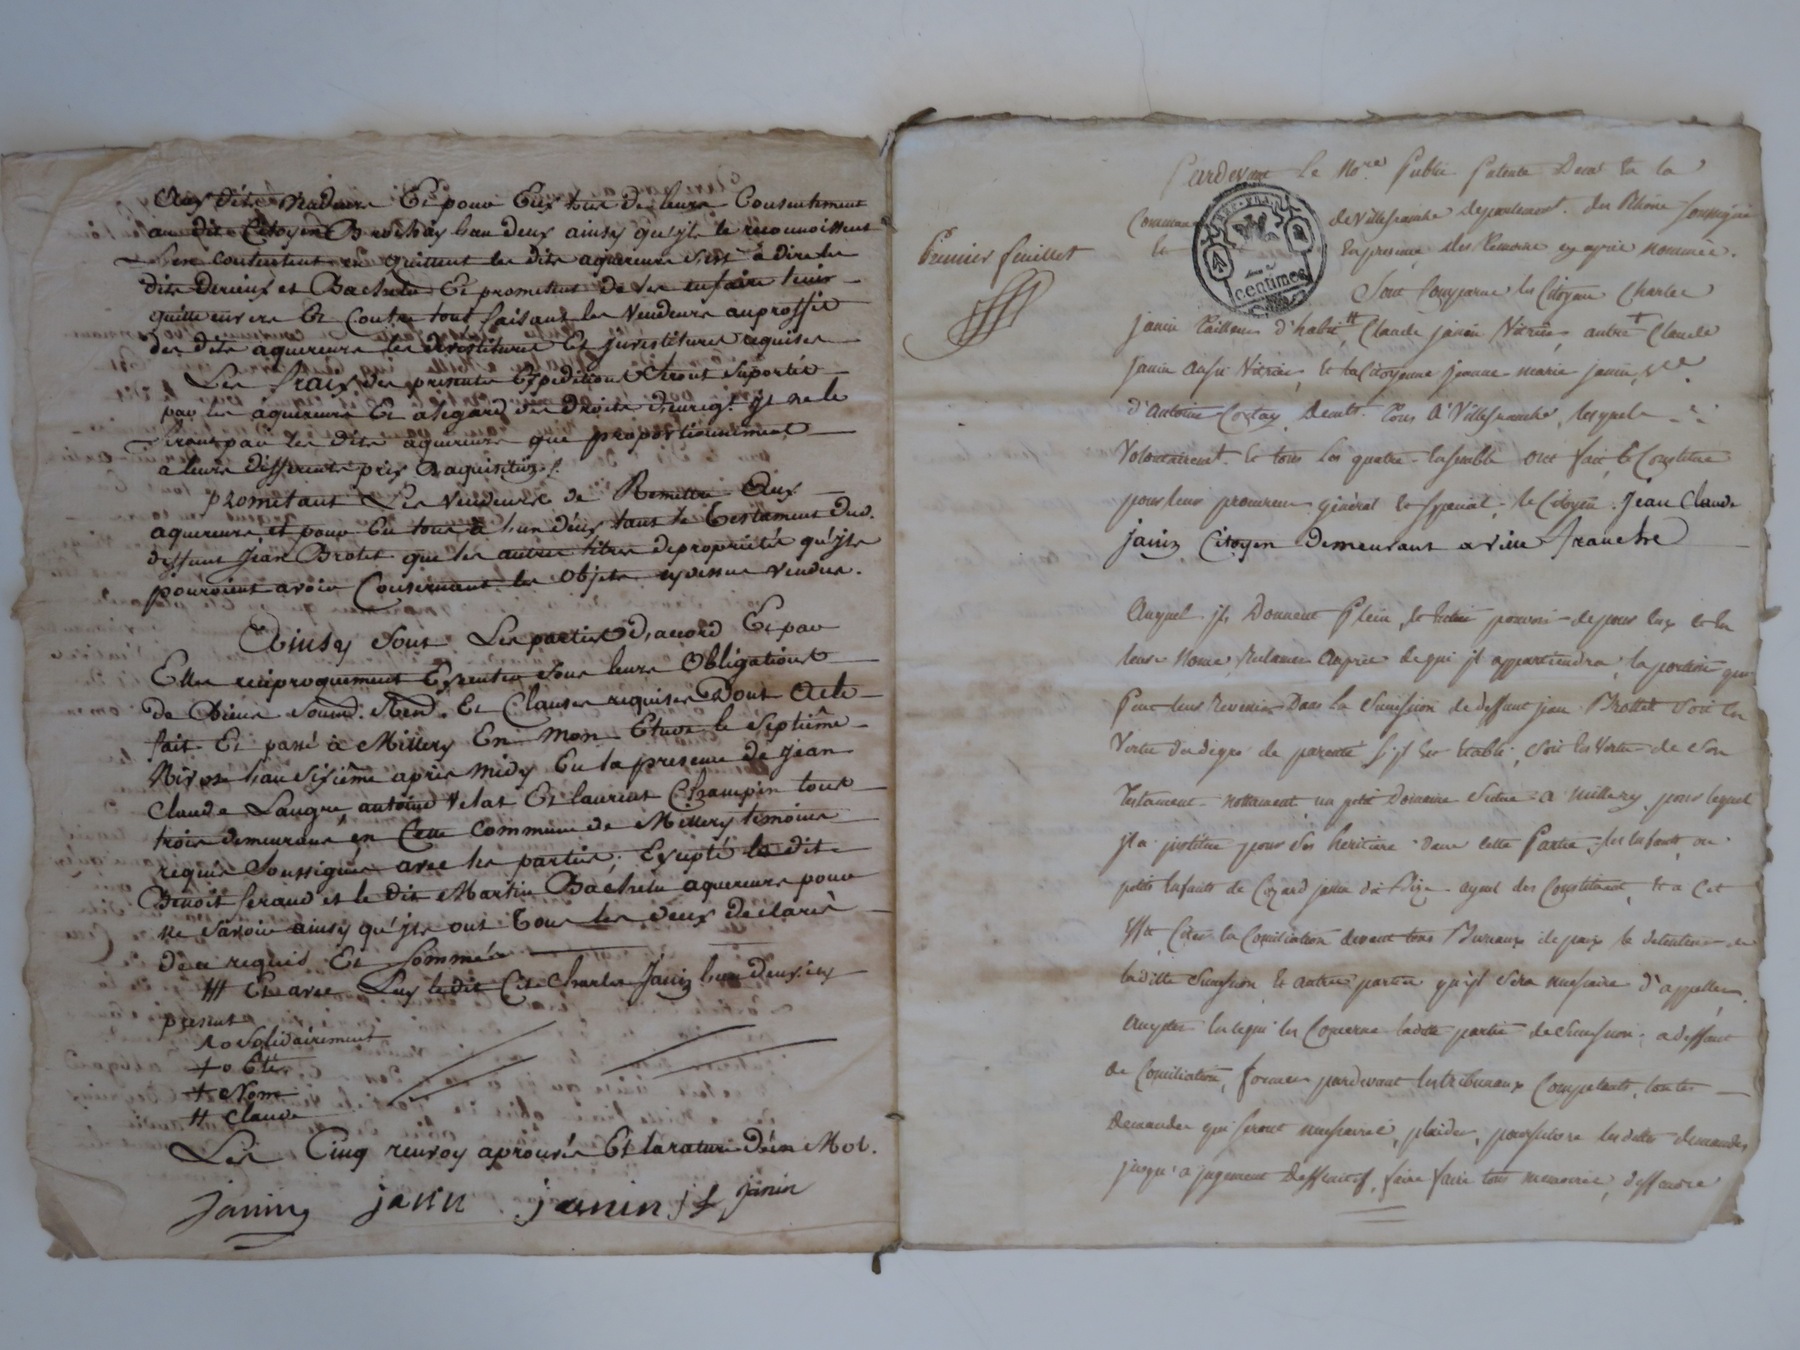 aux dits vendeurs Et pour Eux tous de leurs Consentement
au dit Citoyen Brochay l'un deux ainsy qu'jls le reconnoissent
s'en contentent en quittent les dits aquereurs c'est à dire les
dits Derieux et Bachelu Et promettent de les en faire tenir
quitte envers Et Contre tout faisant les Vendeurs au proffit
des dits aquereurs les devestitures Et jnvestitures requises
Les frais des presentes Expeditions seront suportés
par les aquereurs Et a l'egard des Droits d'enregt. jls ne le
seront par les dits aquereurs que proportionnement
à leurs differents prix D'aquisition /.
promettant Les Vendeurs de Remettre Aux
aquereurs, et pour Eu tous à l'un d'eux tant le testament dud.
deffunt Jean Brotet que les autres titres de propriétés qu'jls
pourroient avoir Concernant les Objets cydessus vendus.
Ainsy sont Les parties d'acord Et par
Elles reciproquement sous leurs Obligations
de Biens soumd. Rend. Et Clauses requises Dont Acte
fait Et passé à Millery En mon Etude le septième
Nivose l'an Sixième après midy En la presence de Jean
Claude Laugre, antoine Velat Et laurent Champin tous
trois demeurans en Cette Commune de Millery temoins
requis Soussignés avec les parties, Excepté le dit
Benoit feraud et le dit Martin Bachelu aquereurs pour
ne savoir ainsy qu'jls ont tous les deux déclaré
de ce requis Et sommés
## Et avec Luy le dit Cit. Charles Janin l'un deux icy
present
1o Solidairement
+o Etés
+ Nom
# Claude
Les Cinq renvoy aprouvés Et la rature d'un Mot.
janin janin janin janin
Pardevant le Nore. Public Patenté
Premier feuillet
Commune de Villefranche departement du Rhône soussigné
et En presence des temoins cy après nommés.
centimes
Sont Comparus les Citoyens Charles
janin tailleur d'habit, # Claude janin Vitrier, autre + Claude
janin aussi Vitrier, & la Citoyenne jeanne marie janin, ve.
d'Antoine demts. tous à Villefranche, lesquels
Volontairemt. & tous les quatre Ensemble ont fait & Constitué
pour leur procureur général & special, le Citoyen Jean Claude
janin Citoyen demeurant a ville franche
Auquel jls Donnent Plein, & Entier pouvoir de pour Eux & En
leurs Noms, Reclamer Auprès de qui jl appartiendra, la portion qui
Peut leur Revenir Dans la Succession de deffunt jean Brottet soit En
Vertu du degré de parenté s'jl est Etabli, soit En Vertu de son
Testament notamment un petit Domaine situé à Millery, pour lequel
jl a jnstitué pour ses heritiers dans cette Partie les Enfants ou
petits Enfants de janin dit ayeul des Constituants, & a Cet
Effet Citer En Conciliation devant tous Bureaux de paix le detenteur de
laditte Succession & autres parties qu'jl sera necessaire d'appeller
Auxdites En ce qui les Concerne laditte partie de Succession; a deffaut
de Conciliation, former pardevant les tribunaux Competents, toutes
demandes qui seront necessaires, plaider, poursuivre lesdittes demandes
jusqu'a jugement deffinitif, faire faire tous memoires, deffendre